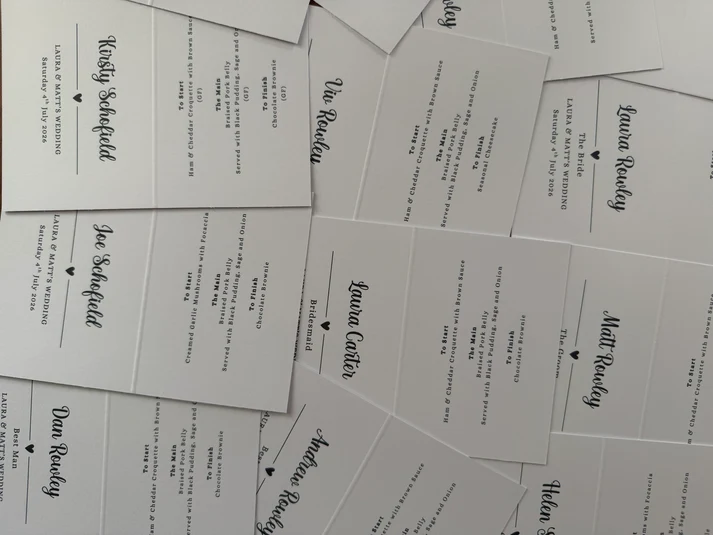 Kirsty Schofield
LAURA & MATT'S WEDDING
Saturday 4th July 2026
To Start
Ham & Cheddar Croquette with Brown Sauce
(GF)
The Main
Braised Pork Belly
Served with Black Pudding, Sage and On
(GF)
To Finish
Chocolate Brownie
(GF)
Viv Rowley
To Start
Ham & Cheddar Croquette with Brown Sauce
The Main
Braised Pork Belly
Served with Black Pudding, Sage and Onion
To Finish
Seasonal Cheesecake
wley
Ham & Chedda
Served with
Laura Rowley
The Bride
LAURA & MATT'S WEDDING
Saturday 4th July 2026
Joe Schofield
LAURA & MATT'S WEDDING
Saturday 4th July 2026
To Start
Creamed Garlic Mushrooms with Focaccia
The Main
Braised Pork Belly
Served with Black Pudding, Sage and Onion
To Finish
Chocolate Brownie
Laura Carter
Bridesmaid
To Start
Ham & Cheddar Croquette with Brown Sauce
The Main
Braised Pork Belly
Served with Black Pudding, Sage and Onion
To Finish
Chocolate Brownie
Matt Rowley
The Groom
To Start
m & Cheddar Croquette with Brown Sauce
Dan Rowley
Best Man
LAURA & MATT'S WEDDING
To Start
am & Cheddar Croquette with Brown
The Main
Braised Pork Belly
erved with Black Pudding, Sage and
To Finish
Chocolate Brownie
Andrew Rowley
Start
Croquette with Brown Sauce
Main
Pork Belly
Sage and Onion
Helen S
with Focaccia
Sage and Onion